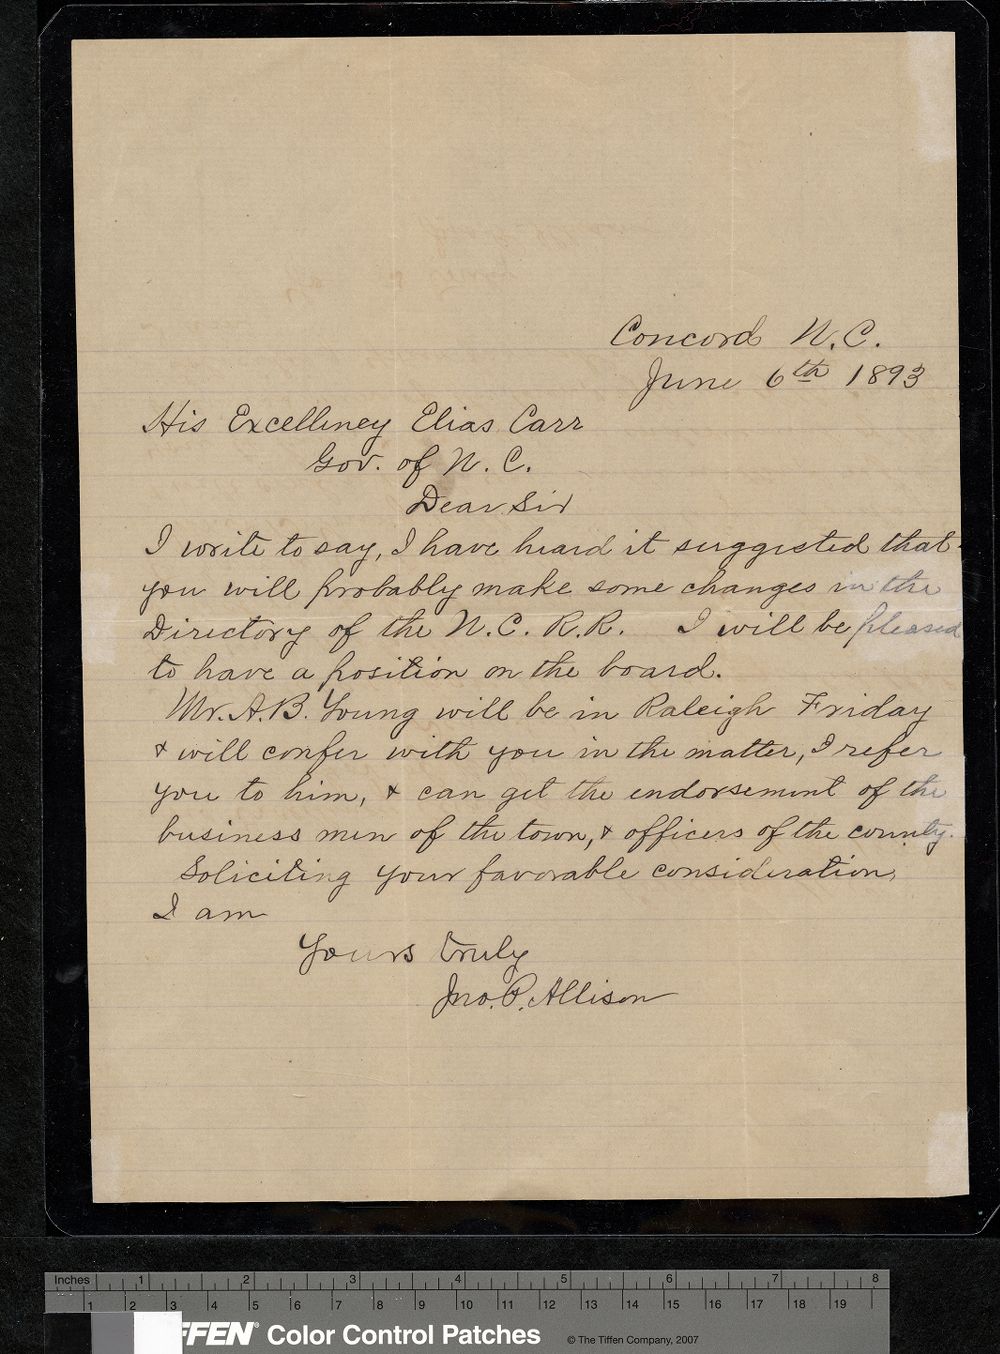 Concord N.C.
June 6th 1893
His Excellency Elias Carr
Gov. of N.C.
Dear Sir
I write to say, I have heard it suggested that
you will probably make some changes in the
Directory of the N.C. R.R. I will be pleased
to have a position on the board.
Mr. A.B. Young will be in Raleigh Friday
& will confer with you in the matter, I refer
you to him, & can get the endorsement of the
business men of the town, & officers of the county.
Soliciting your favorable consideration,
I am
Yours truly
Jno. P. Allison
Inches 1 2 3 4 5 6 7 8
1 2 3 4 5 6 7 8 9 10 11 12 13 14 15 16 17 18 19
FFEN® Color Control Patches © The Tiffen Company, 2007